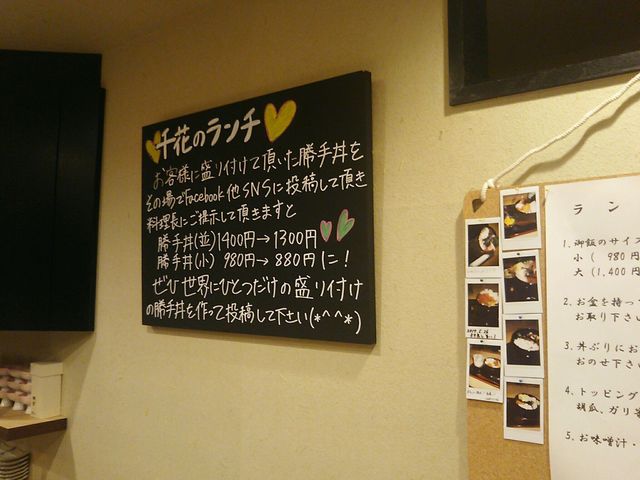 千花のランチ
お客様に盛り付けて頂いた勝手丼を
その場でfacebook他SNSに投稿して頂き
料理長にご提示して頂きますと
勝手丼(並)1400円→1300円
勝手丼(小) 980円→880円に!
ぜひ世界にひとつだけの盛り付け
の勝手丼を作って投稿して下さい(*^^*)
ラン
1. 御飯のサイズ
小 ( 980円
大 (1,400円
2. お金を持っ
お取り下さい
3. 丼ぶりにお
おのせ下さい
4. トッピング
胡瓜、ガリ
5. お味噌汁・